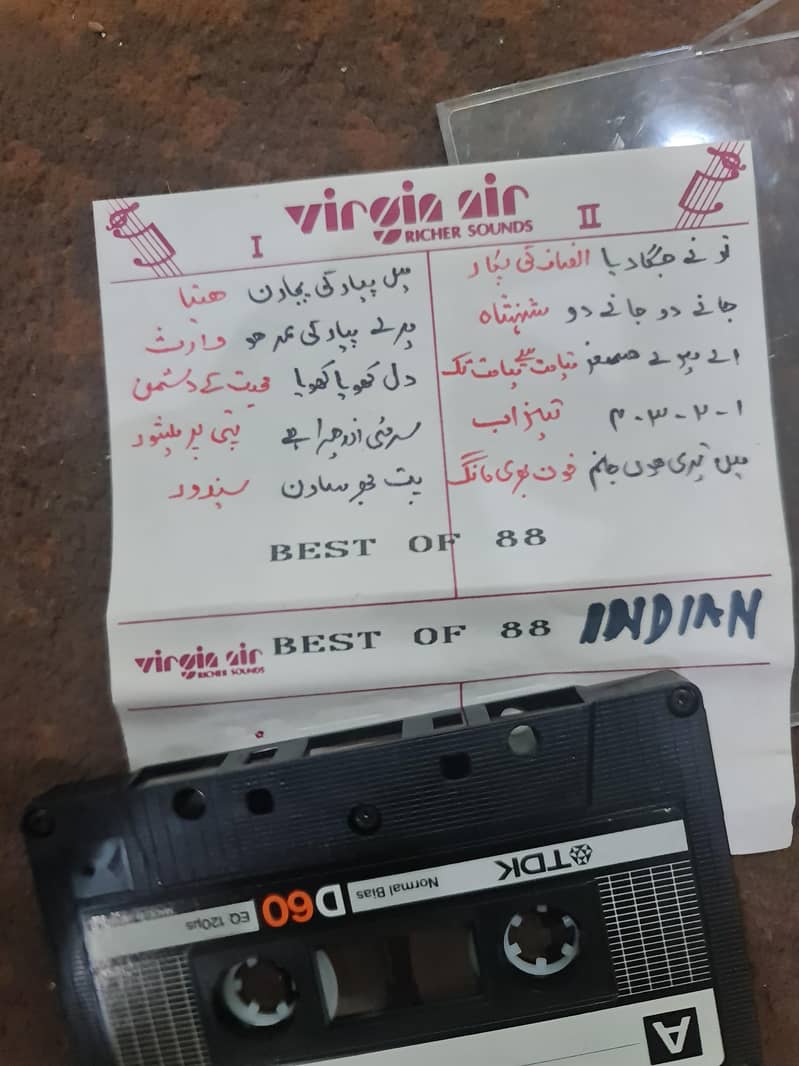 virgin air
RICHER SOUNDS
I
II
میں پیار کی پجارن ہتیا
میرے پیار کی عمر ہو وارث
دل کھویا کھویا محبت کے دشمن
سرمئی اندھیرا ہے پتی پرمیشور
پت جھڑ ساون سیندور
تو نے جگا دیا انصاف کی پکار
جانے دو جانے دو شہنشاہ
اے میرے صنم قیامت سے قیامت تک
۱-۲-۳-۴ تیزاب
میں تیری ہوں جانم خون بھری مانگ
BEST OF 88
virgin air
RICHER SOUNDS
BEST OF 88 INDIAN
TDK
Normal Bias
D60
EQ 120µs
A